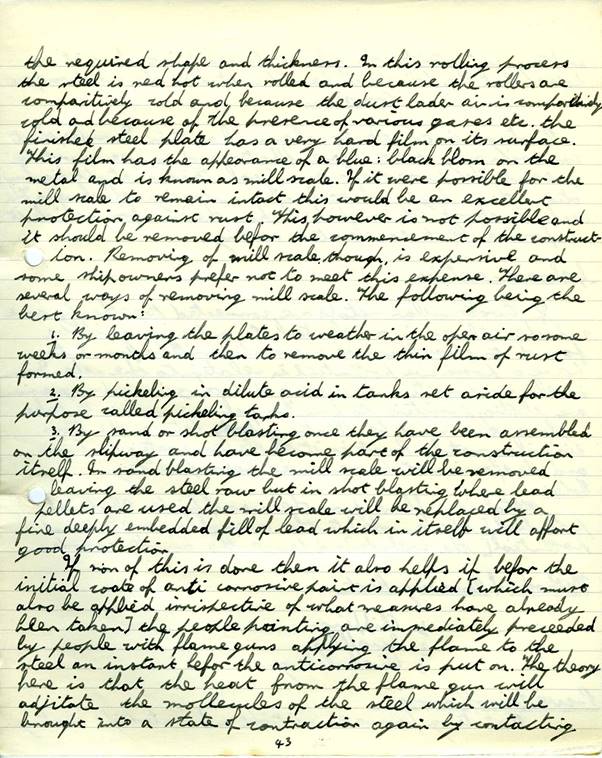 the required shape and thickness. In this rolling process
the steel is red hot when rolled and because the rollers are
compairitively cold and because the dust laden air is comparitively
cold ad because of the presence of various gases etc. the
finished steel plate has a very hard film on its surface.
This film has the appearance of a blue: black blom on the
metal and is known as mill scale. If it were possible for the
mill scale to remain intact this would be an excellent
protection against rust. This, however is not possible and
it should be removed befor the commencement of the construct-
ion. Removing of mill scale, though, is expensive and
some shipowners prefer not to meet this expense. There are
several ways of removing mill scale. The following being the
best known:
1. By leaving the plates to weather in the open air so some
weeks or months and then to remove the thin film of rust
formed.
2. By pickeling in dilute acid in tanks set aside for the
purpose called pickeling tanks.
3. By sand or shot blasting once they have been assembled
on the slipway and have become part of the construction
itself. In sand blasting the mill scale will be removed
leaving the steel raw but in shot blasting where lead
pellets are used the mill scale will be replaced by a
fine deeply embedded fill of lead which in itself will affort
good protection
If non of this is done then it also helps if befor the
initial coate of anti corrosive paint is applied [which must
also be applied irrispective of what measures have already
been taken] the people painting are immediately preceeded
by people with flame guns applying the flame to the
steel an instant befor the anticorrosive is put on. The theory
here is that the heat from the flame gun will
adjitate the mollecycles of the steel which will be
brought into a state of contraction again by contacting
43